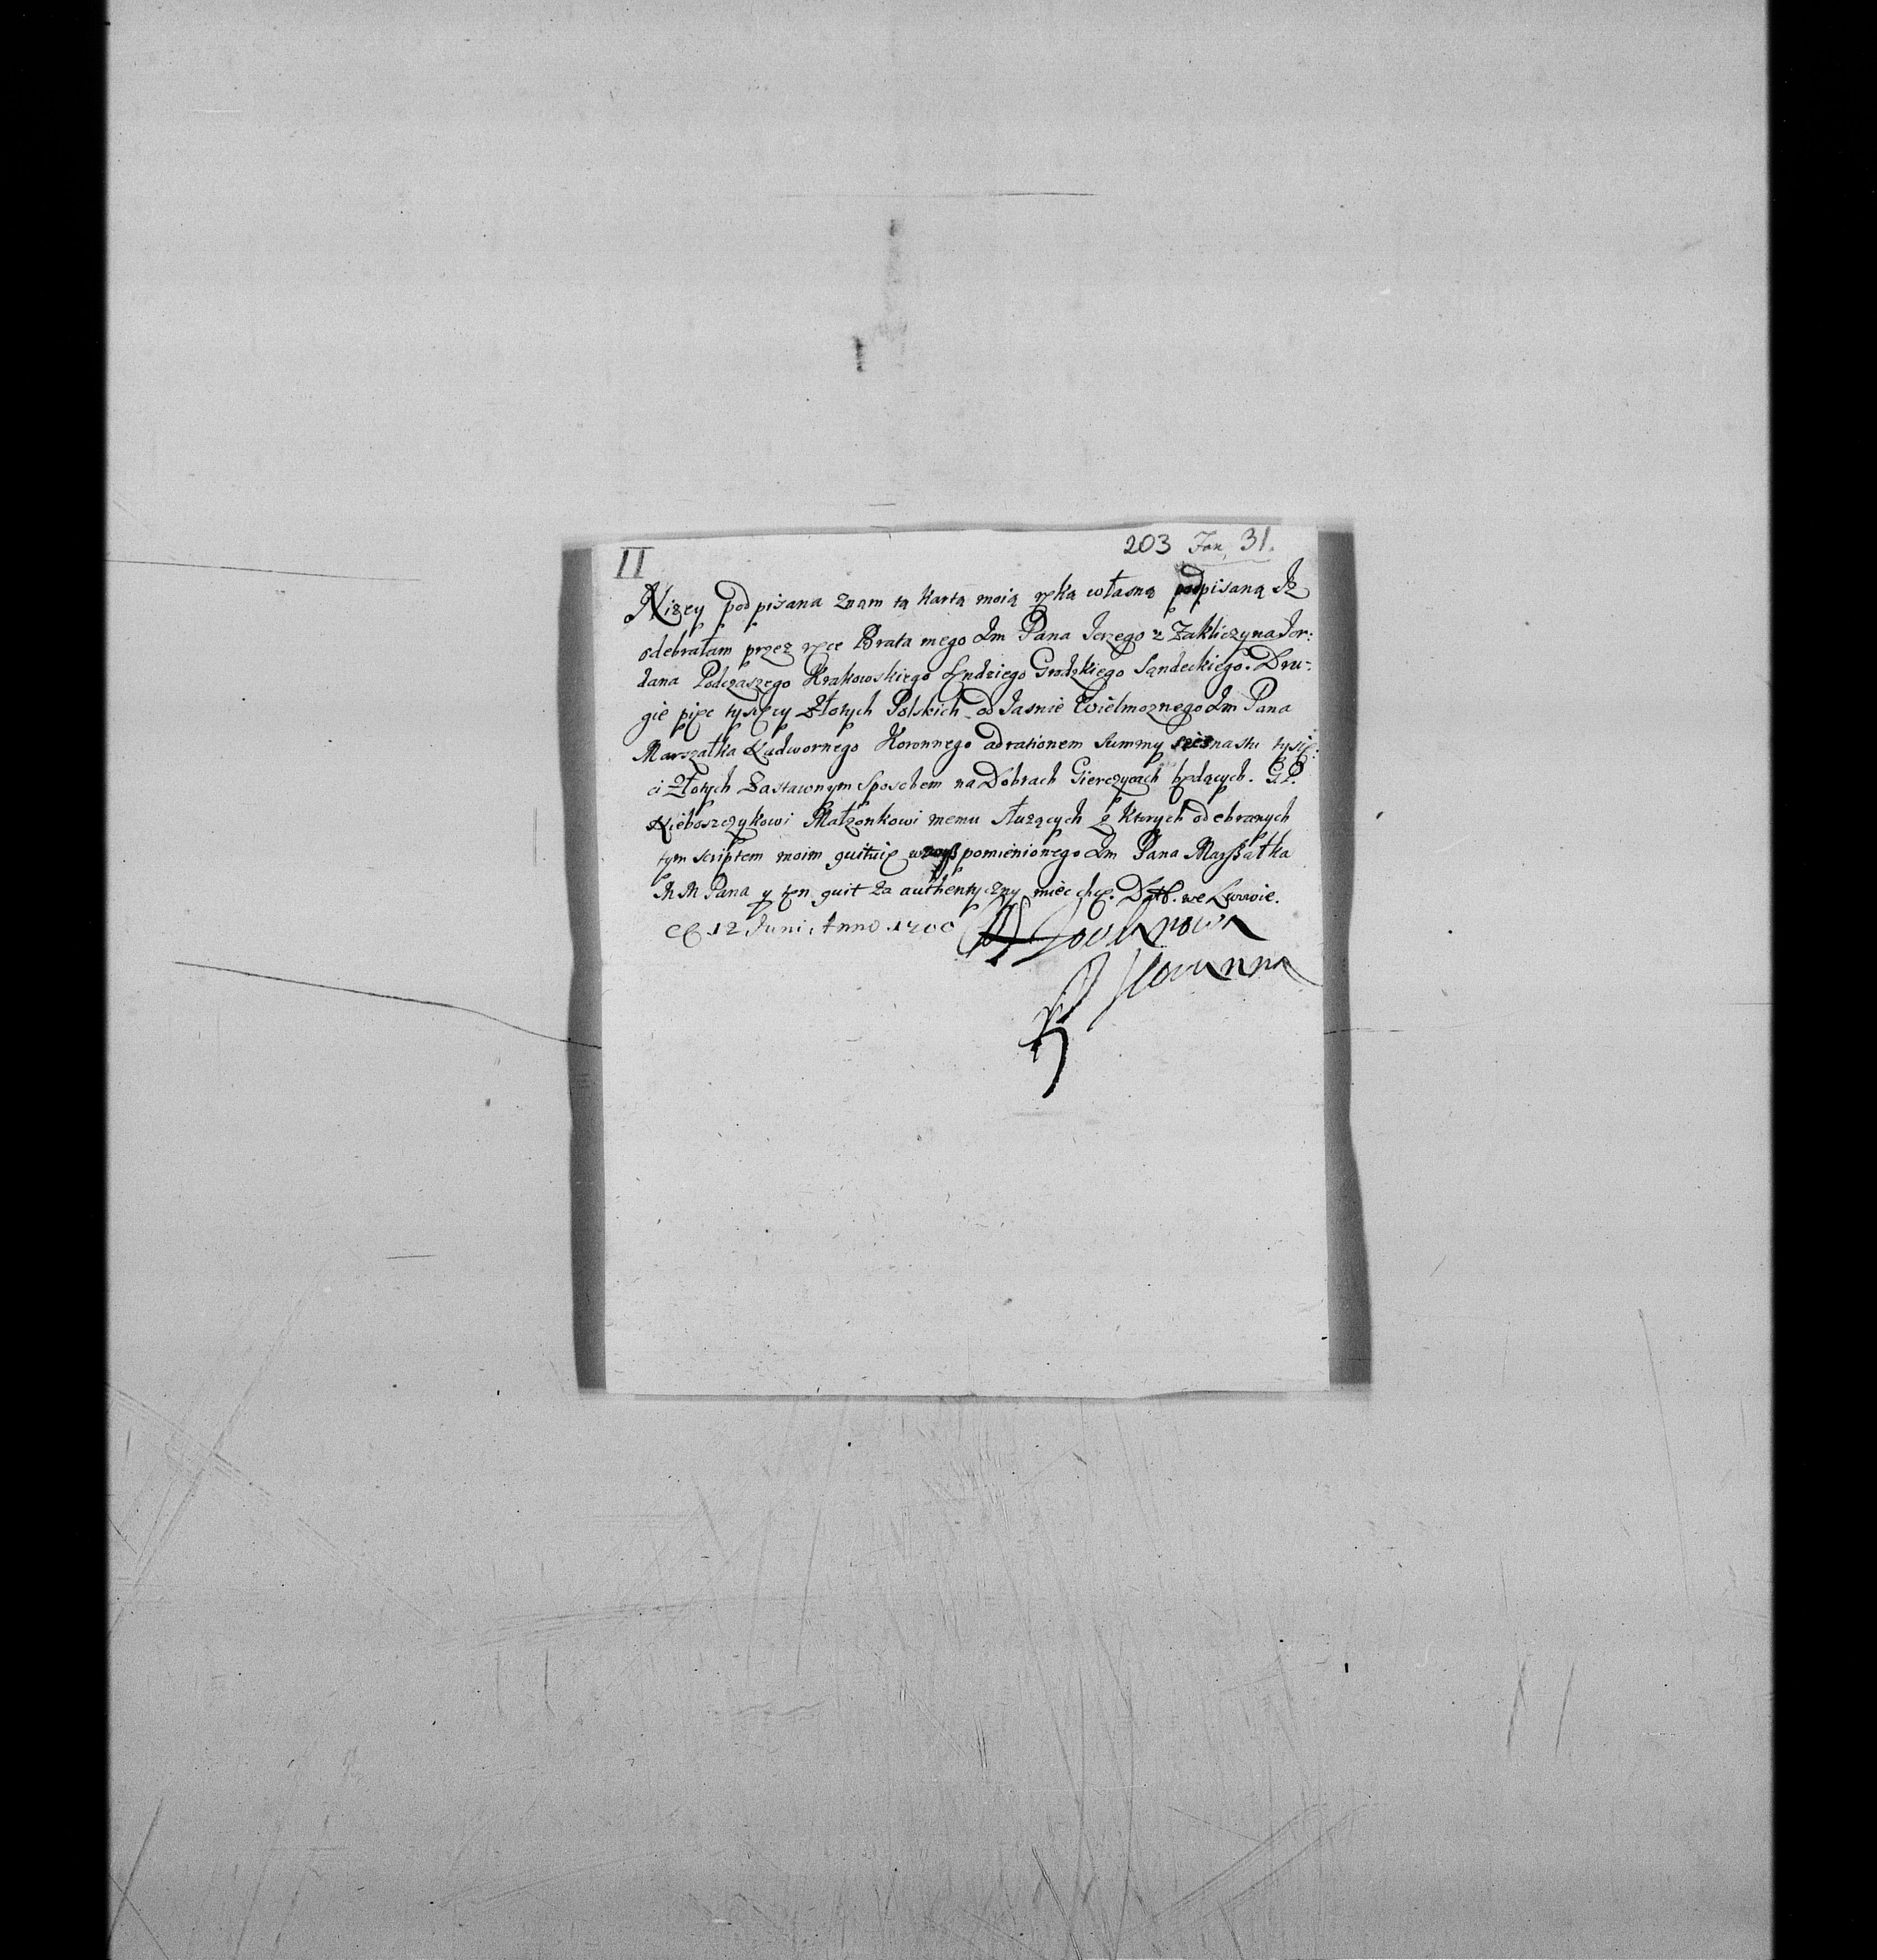 II
203 Jan, 31.
Nizey podpisana znam tą kartą moią ręką własną podpisaną Iż
odebrałam przez ręce Brata mego Im Pana Jerzego z Zakliczyna Jor:
dana Podczaszego Krakowskiego Sędziego Grodzkiego Sąndeckiego. Dru-
gie pięc tysięcy Złotych Polskich od Jasnie Wielmoznego Im Pana
Marszałka Nadwornego Koronnego ad rationem Summy szesnastu tysię:
ci Złotych Zastawnym Sposobem na Dobrach Gierczycach będących. G P.
Nieboszczykowi Małzonkowi memu słuzących z ktorych odebranych
tym scriptem moim quituię pomienionego Im Pana Marszałka
M M Pana y ten quit za authentyczny miec chcę. Datt. we Lwowie.
12 Juni, Anno 1700